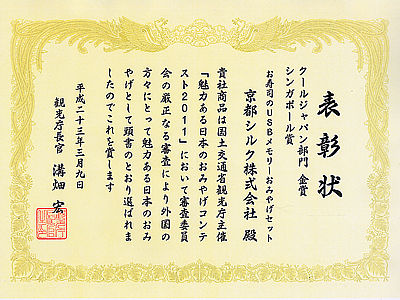 表彰状
クールジャパン部門 金賞
シンガポール賞
お寿司のUSBメモリーおみやげセット
京都シルク株式会社 殿
貴社商品は国土交通省観光庁主催
「魅力ある日本のおみやげコンテ
スト2011」において審査委員
会の厳正なる審査により外国の
方々にとって魅力ある日本のおみ
やげとして頭書のとおり選ばれま
したのでこれを賞します
平成二十三年三月九日
観光庁長官 溝畑 宏